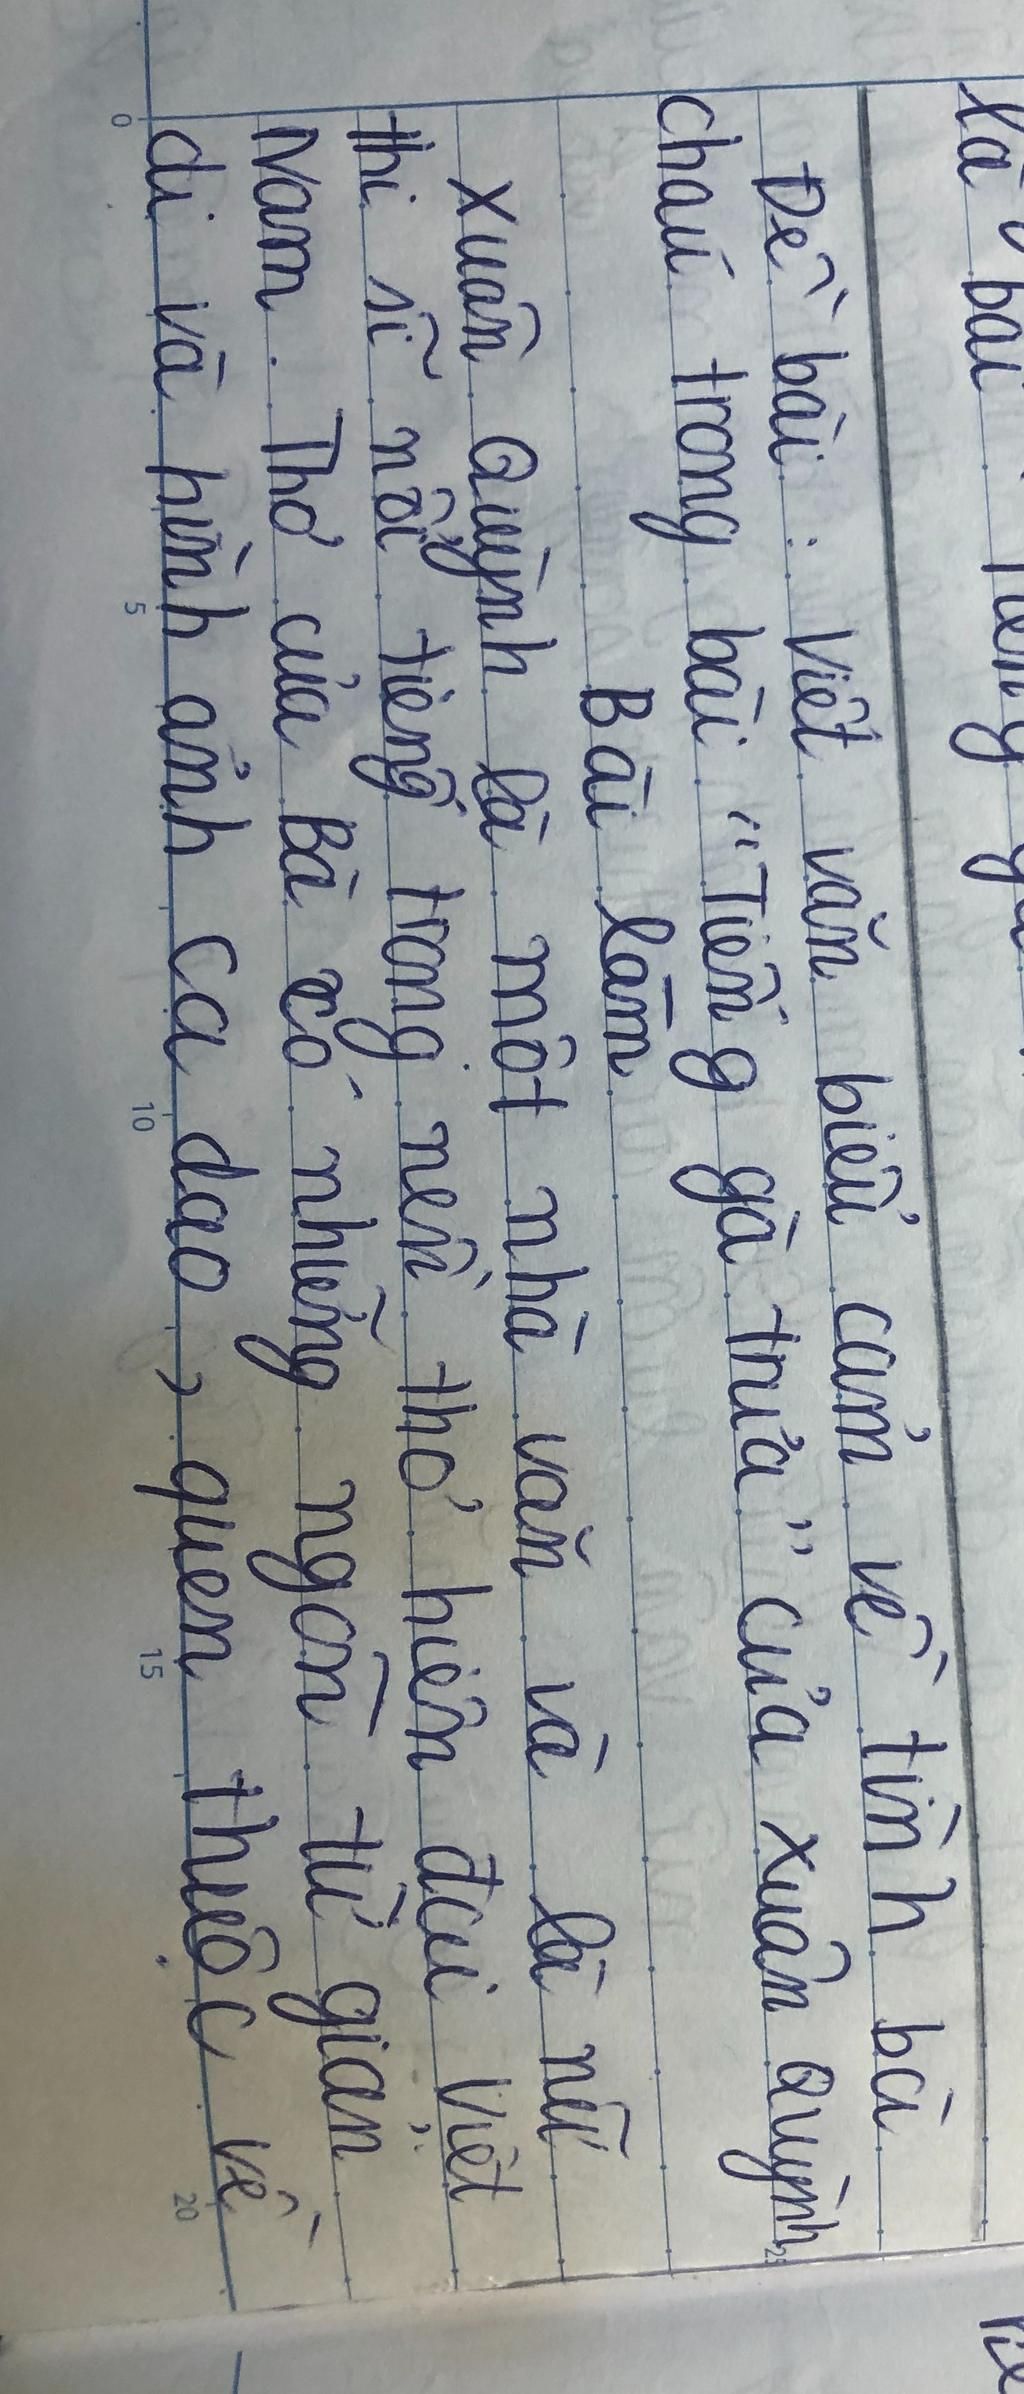 là bài
Đề bài: Viết văn biểu cảm về tình bà
cháu trong bài "Tiếng gà trưa" của Xuân Quỳnh
Bài làm
Xuân Quỳnh là một nhà văn và là nữ
thi sĩ nổi tiếng trong nền thơ hiện đại Việt
Nam. Thơ của Bà có những ngôn từ giản
dị và hình ảnh ca dao, quen thuộc về